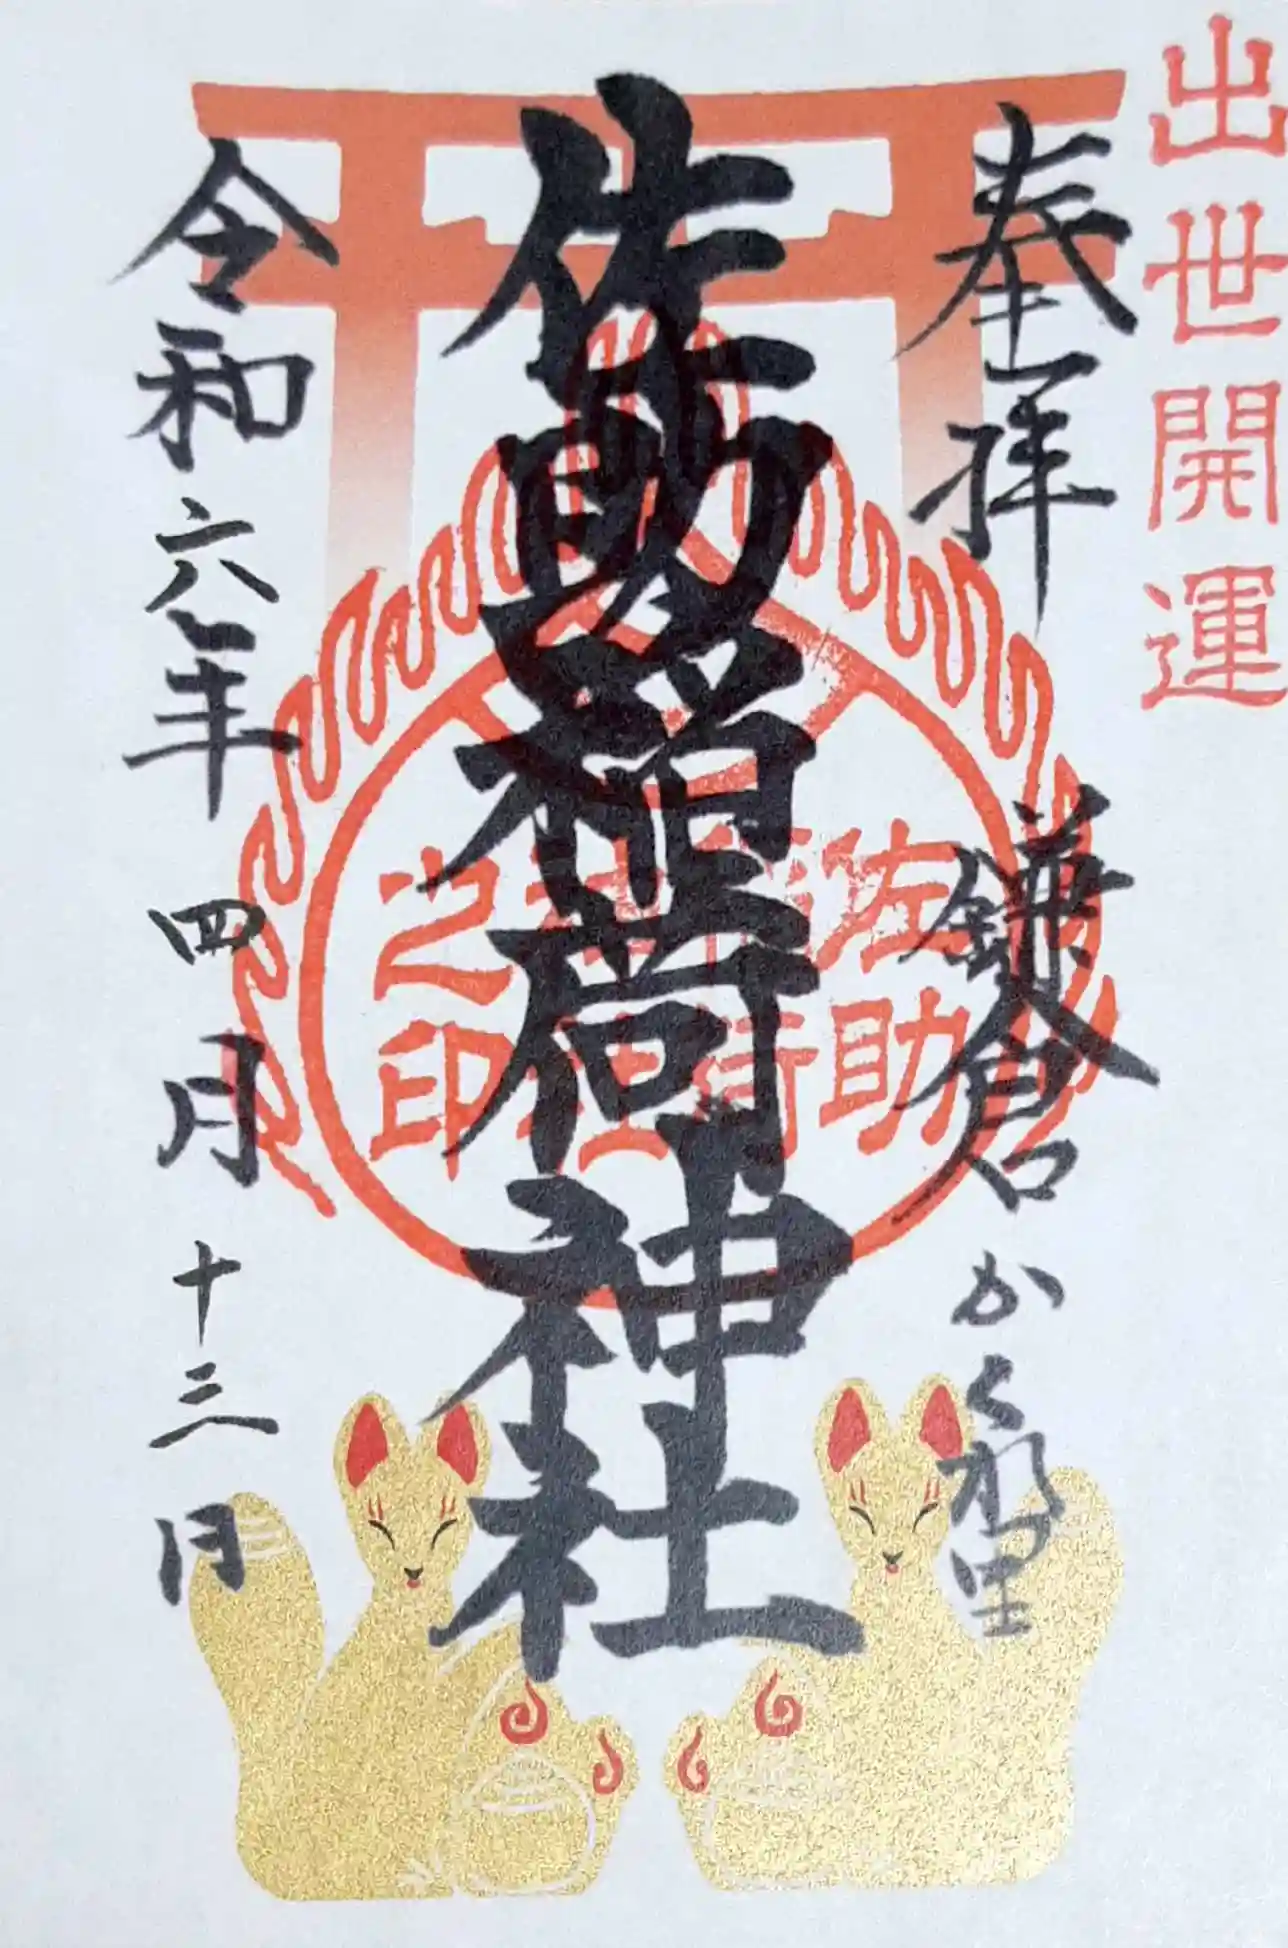 出世開運
奉拝
鎌倉かくれ里
佐助稲荷神社
佐助
稲荷
神社
之印
令和六年四月十三日